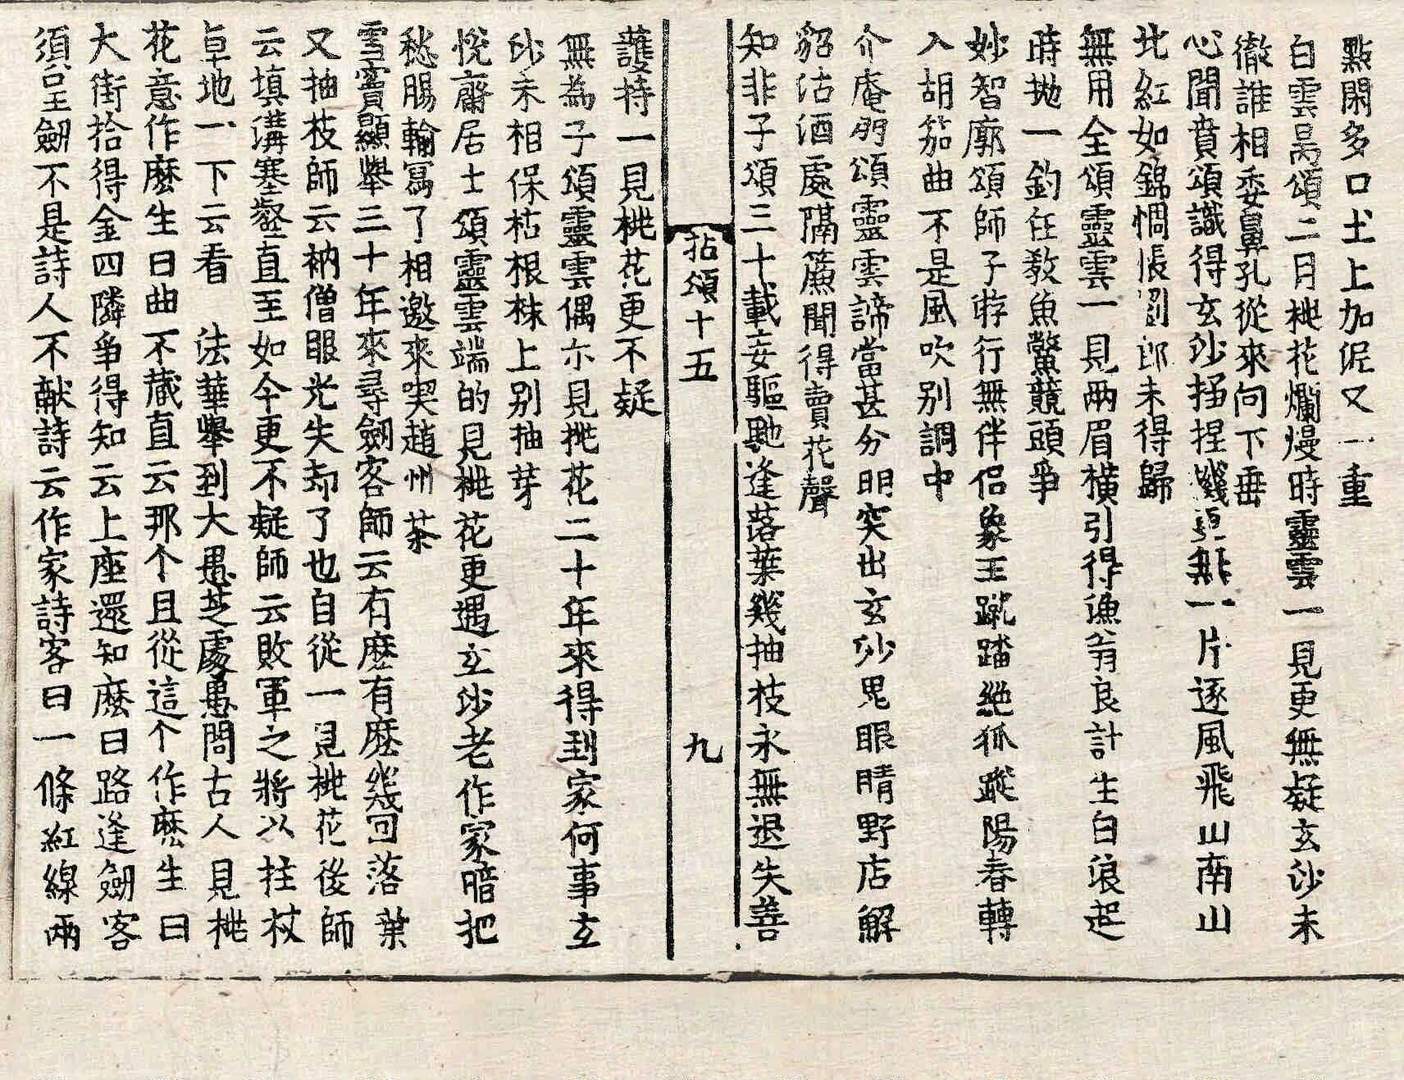 點開多口土上加泥又一重
白雲昺頌二月桃花爛熳時靈雲一見更無疑玄沙未
徹誰相委鼻孔從來向下垂
心聞賁頌識得玄沙搯捏機更無一片逐風飛山南山
北紅如錦惆悵劉郎未得歸
無用全頌靈雲一見兩眉橫引得漁翁良計生白浪起
時拋一釣任教魚鱉競頭爭
妙智廓頌師子遊行無伴侣象王蹴踏絶狐蹤陽春轉
入胡笳曲不是風吹别調中
介庵朋頌靈雲諦當甚分明突出玄沙鬼眼睛野店解
貂沽酒處隔簾聞得賣花聲
知非子頌三十載妄驅馳逢落葉幾抽枝永無退失善
拈頌十五 九
護持一見桃花更不疑
無為子頌靈雲偶尒見桃花二十年來得到家何事玄
沙未相保枯根株上别抽芽
悅齋居士頌靈雲端的見桃花更遇玄沙老作家暗把
愁腸輸寫了相邀來喫趙州茶
雪竇顯舉三十年來尋劒客師云有麽有麽幾回落葉
又抽枝師云衲僧眼光失却了也自從一見桃花後師
云填溝塞壑直至如今更不疑師云敗軍之將以拄杖
卓地一下云看 法華舉到大愚芝處愚問古人見桃
花意作麽生曰曲不藏直云那个且從這个作麽生曰
大街拾得金四隣爭得知云上座還知麽曰路逢劒客
須呈劒不是詩人不献詩云作家詩客曰一條紅線兩